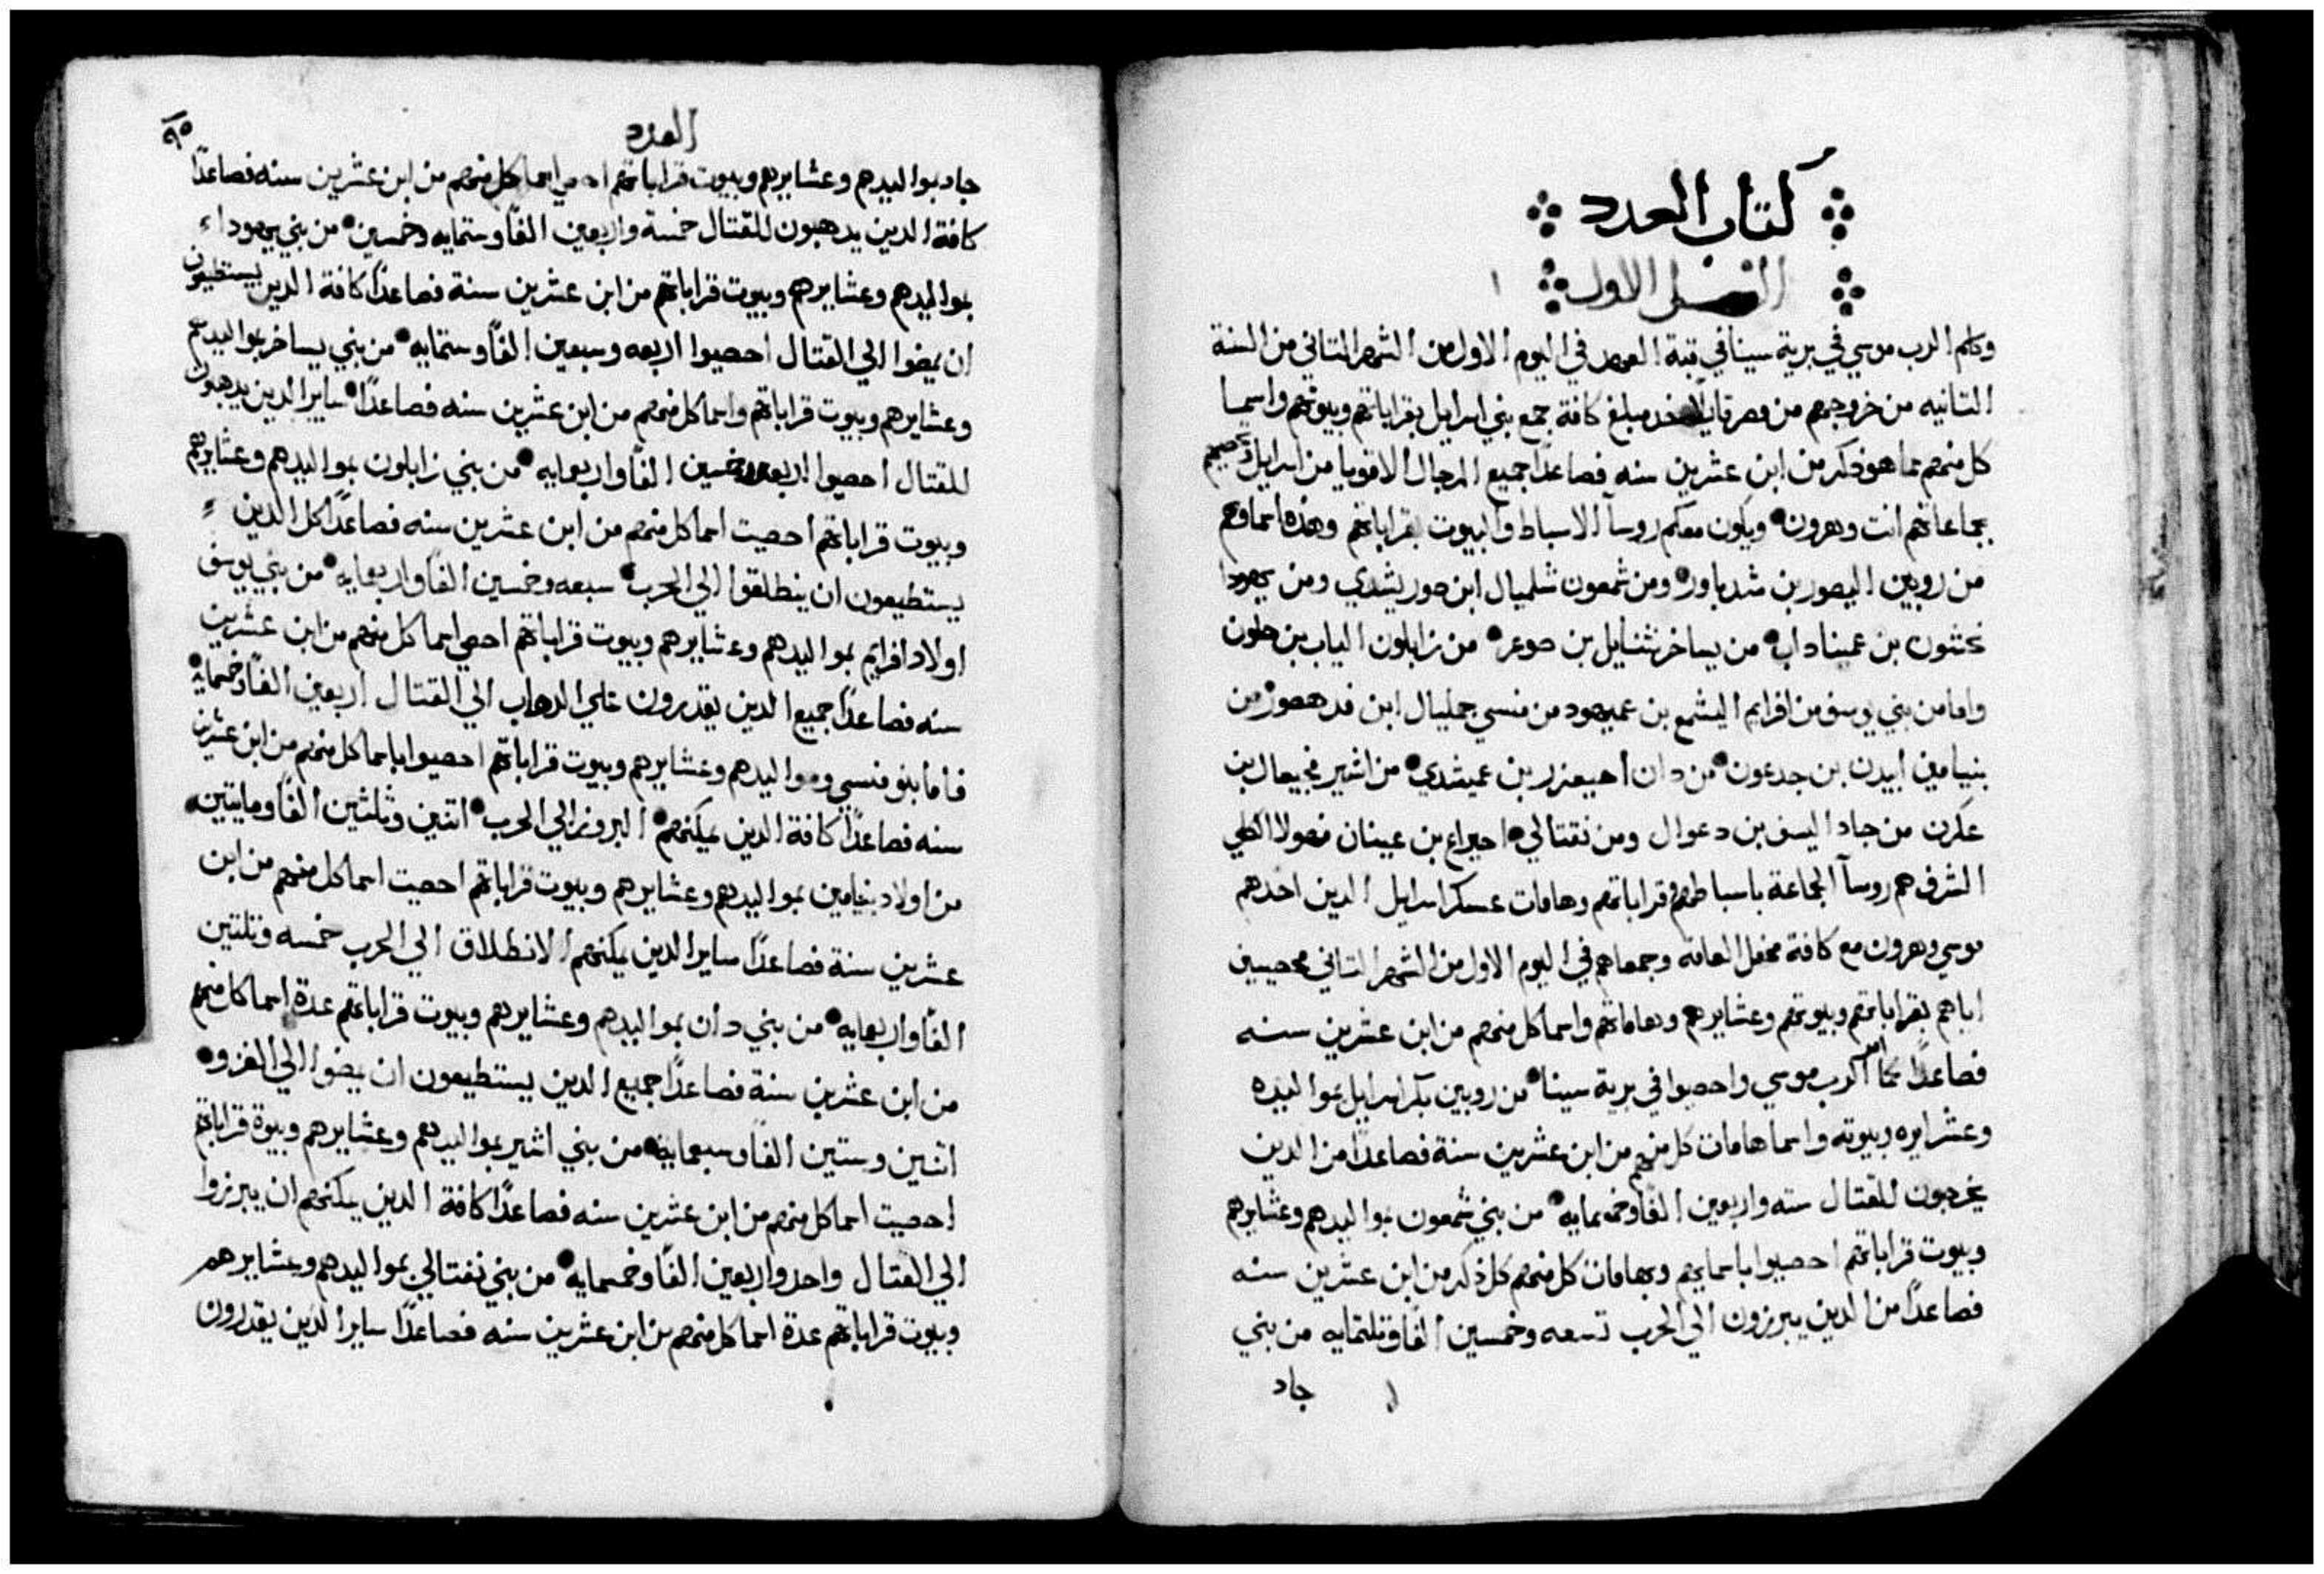 كتاب العدد
الفصل الاول ١
وكلم الرب موسي في برية سينا في قبة العهد في اليوم الاول من الشهر التاني من السنة
التانيه من خروجهم من مصر قايلاً خد مبلغ كافة جمع بني اسرايل بقراباتهم وبيوتهم واسما
كل منهم مما هو دكر من ابن عشرين سنه فصاعداً جميع الرجال الاقويا من اسرايل
بجماعاتهم انت وهرون ويكون معكم روسآ الاسباط والبيوت بقراباتهم وهذه اسماوهم
من روبين اليصور بن شدياور ومن شمعون شلميال ابن صوريشدي ومن يهودا
نحشون بن عميناداب من يساخر نثنايل بن صوعر من زابلون الياب بن حلون
واما من بني يوسف من افرايم اليشمع بن عميهود من منسي جمليال ابن فدهصور من
بنيامين ابيدن بن جدعون من دان احيعزر بن عميشدي من اشير فجيعال بن
عكرن من جاد اليسف بن دعوال ومن نفتالي احيراع بن عينان فهولا الكلي
الشرف هم روسآ الجماعة باسباطهم وقراباتهم وهامات عسكر اسرايل الدين اخدهم
موسي وهرون مع كافة محفل العامه وجمعاهم في اليوم الاول من الشهر التاني محصيين
اياهم بقراباتهم وبيوتهم وعشايرهم وبهاماتهم واسما كل منهم من ابن عشرين سنه
فصاعداً كما امر الرب موسي واحصوا في برية سينا من روبين بكر اسرايل بمواليده
وعشرايره وبيوته واسما هامات كل منهم من ابن عشرين سنة فصاعداً من الدين
يخرجون للقتال سته واربعين الفاً وخمسمايه من بني شمعون بمواليدهم وعشايرهم
وبيوت قراباتهم احصيوا باسمايهم وبهامات كل منهم كل ذكر من ابن عشرين سنه
فصاعداً من الدين يبرزون الي الحرب تسعه وخمسين الفاً وتلتمايه من بني
جاد
العدد
٩٥
جاد بمواليدهم وعشايرهم وبيوت قراباتهم اسما كل منهم من ابن عشرين سنه فصاعداً
كافة الدين يدهبون للقتال خمسة واربعين الفاً وستمايه وخمسين من بني يهودا
بمواليدهم وعشايرهم وبيوت قراباتهم من ابن عشرين سنة فصاعداً كافة الدين يستطيعون
ان يمضوا الي القتال احصيوا اربعه وسبعين الفاً وستمايه من بني يساخر بمواليدهم
وعشايرهم وبيوت قراباتهم واسما كل منهم من ابن عشرين سنه فصاعداً ساير الدين يدهبون
للقتال احصيوا اربعه وخمسين الفاً واربعمايه من بني زابلون بمواليدهم وعشايرهم
وبيوت قراباتهم احصيت اسما كل منهم من ابن عشرين سنه فصاعداً كل الدين
يستطيعون ان ينطلقوا الي الحرب سبعه وخمسين الفاً واربعمايه من بني يوسف
اولاد افرايم بمواليدهم وعشايرهم وبيوت قراباتهم احصي اسما كل منهم من ابن عشرين
سنه فصاعداً جميع الدين يقدرون علي الدهاب الي القتال اربعين الفاً وخمسمايه
فاما بنو منسي ومواليدهم وعشايرهم وبيوت قراباتهم احصيوا باسما كل منهم من ابن عشرين
سنه فصاعداً كافة الدين يمكنهم البروز الي الحرب اتنين وثلثين الفاً ومايتين
من اولاد بنيامين بمواليدهم وعشايرهم وبيوت قراباتهم احصيت اسما كل منهم من ابن
عشرين سنة فصاعداً ساير الدين يمكنهم الانطلاق الي الحرب خمسه وتلتين
الفاً واربعمايه من بني دان بمواليدهم وعشايرهم وبيوت قراباتهم عدة اسما كل منهم
من ابن عشرين سنة فصاعداً جميع الدين يستطيعون ان يمضوا الي الغزو
اتنين وستين الفاً وسبعمايه من بني اشير بمواليدهم وعشايرهم وبيوة قراباتهم
احصيت اسما كل منهم من ابن عشرين سنه فصاعداً كافة الدين يمكنهم ان يبرزوا
الي القتال واحد واربعين الفاً وخمسمايه من بني نفتالي بمواليدهم وعشايرهم
وبيوت قراباتهم عدة اسما كل منهم من ابن عشرين سنه فصاعداً ساير الدين يقدرون